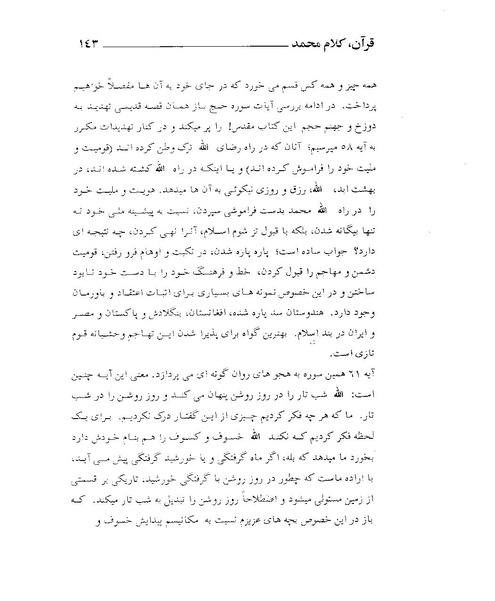 قرآن، کلام محمد ۱٤۳
همه چیز و همه کس قسم می خورد که در جای خود به آن ها مفصلاً خواهیم
پرداخت. در ادامه بررسی آیات سوره حمج باز همان قصه قدیسی تهدید به
دوزخ و جهنم حجم این کتاب مقدس! را پر میکند و در کنار تهدیدات مکرر
به آیه ٥۸ میرسیم؛ آنان که در راه رضای الله ترک وطن کرده اند (قومیت و
ملیت خود را فراموش کرده اند) و یا اینکه در راه الله کشته شده اند، در
بهشت ابد، الله، رزق و روزی نیکوئی به آن ها میدهد. هویت و ملیت خود
را در راه الله محمد بدست فراموشی سپردن، نسبت به پیشینه ملی خود نه
تنها بیگانه شدن، بلکه با قبول تز شوم اسلام، آنرا نهی کردن، چه نتیجه ای
دارد؟ جواب ساده است؛ پاره پاره شدن، در نکبت و اوهام فرو رفتن، قومیت
دشمن و مهاجم را قبول کردن، خط و فرهنگ خود را با دست خود نابود
ساختن و در این خصوص نمونه های بسیاری برای اثبات اعتقاد و باورمان
وجود دارد. هندوستان سد پاره شده، افغانستان، بنگلادش و پاکستان و مصر
و ایران در بند اسلام. بهترین گواه برای پذیرا شدن این تهاجم وحشیانه قوم
تازی است.
آیه ٦۱ همین سوره به هجو های روان گونه ای می پردازد. معنی این آیه چنین
است: الله شب تار را در روز روشن پنهان می کند و روز روشن را در شب
تار. ما که هر چه فکر کردیم چیزی از این گفتار درک نکردیم. برای یک
لحظه فکر کردیم که نکند الله خسوف و کسوف را هم بنام خودش دارد
بخورد ما میدهد که بله، اگر ماه گرفتگی و یا خورشید گرفتگی پیش می آید،
با اراده ماست که چطور در روز روشن با گرفتگی خورشید، تاریکی بر قسمتی
از زمین مستولی میشود و اصطلاحاً روز روشن را تبدیل به شب تار میکند. که
باز در این خصوص بچه های عزیزم نسبت به مکانیسم پیدایش خسوف و